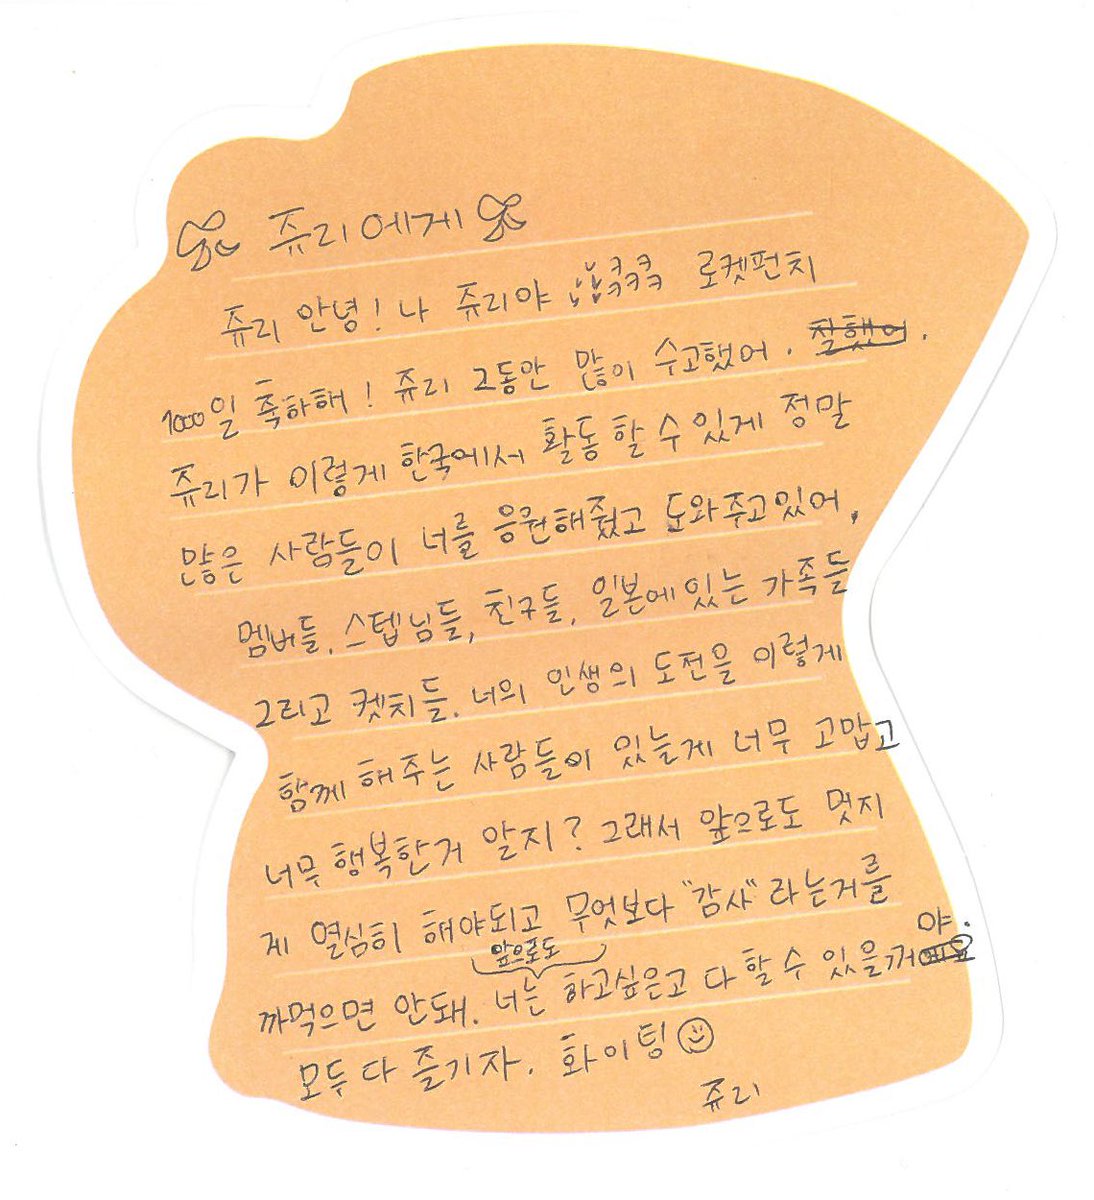 쥬리에게
쥬리 안녕! 나 쥬리야 ㅋㅋㅋㅋㅋㅋ 로켓펀치
1000일 축하해! 쥬리 그동안 많이 수고했어. 잘했어.
쥬리가 이렇게 한국에서 활동할 수 있게 정말
많은 사람들이 너를 응원해줬고 도와주고있어,
멤버들, 스텝님들, 친구들, 일본에있는 가족들
그리고 켓치들. 너의 인생의 도전을 이렇게
함께 해주는 사람들이 있는게 너무 고맙고
너무 행복한거 알지? 그래서 앞으로도 멋지
게 열심히 해야되고 무엇보다 "감사"라는거를
까먹으면 안돼. 너는 앞으로도 하고싶은고 다 할 수 있을꺼야.
모두 다 즐기자. 화이팅
쥬리